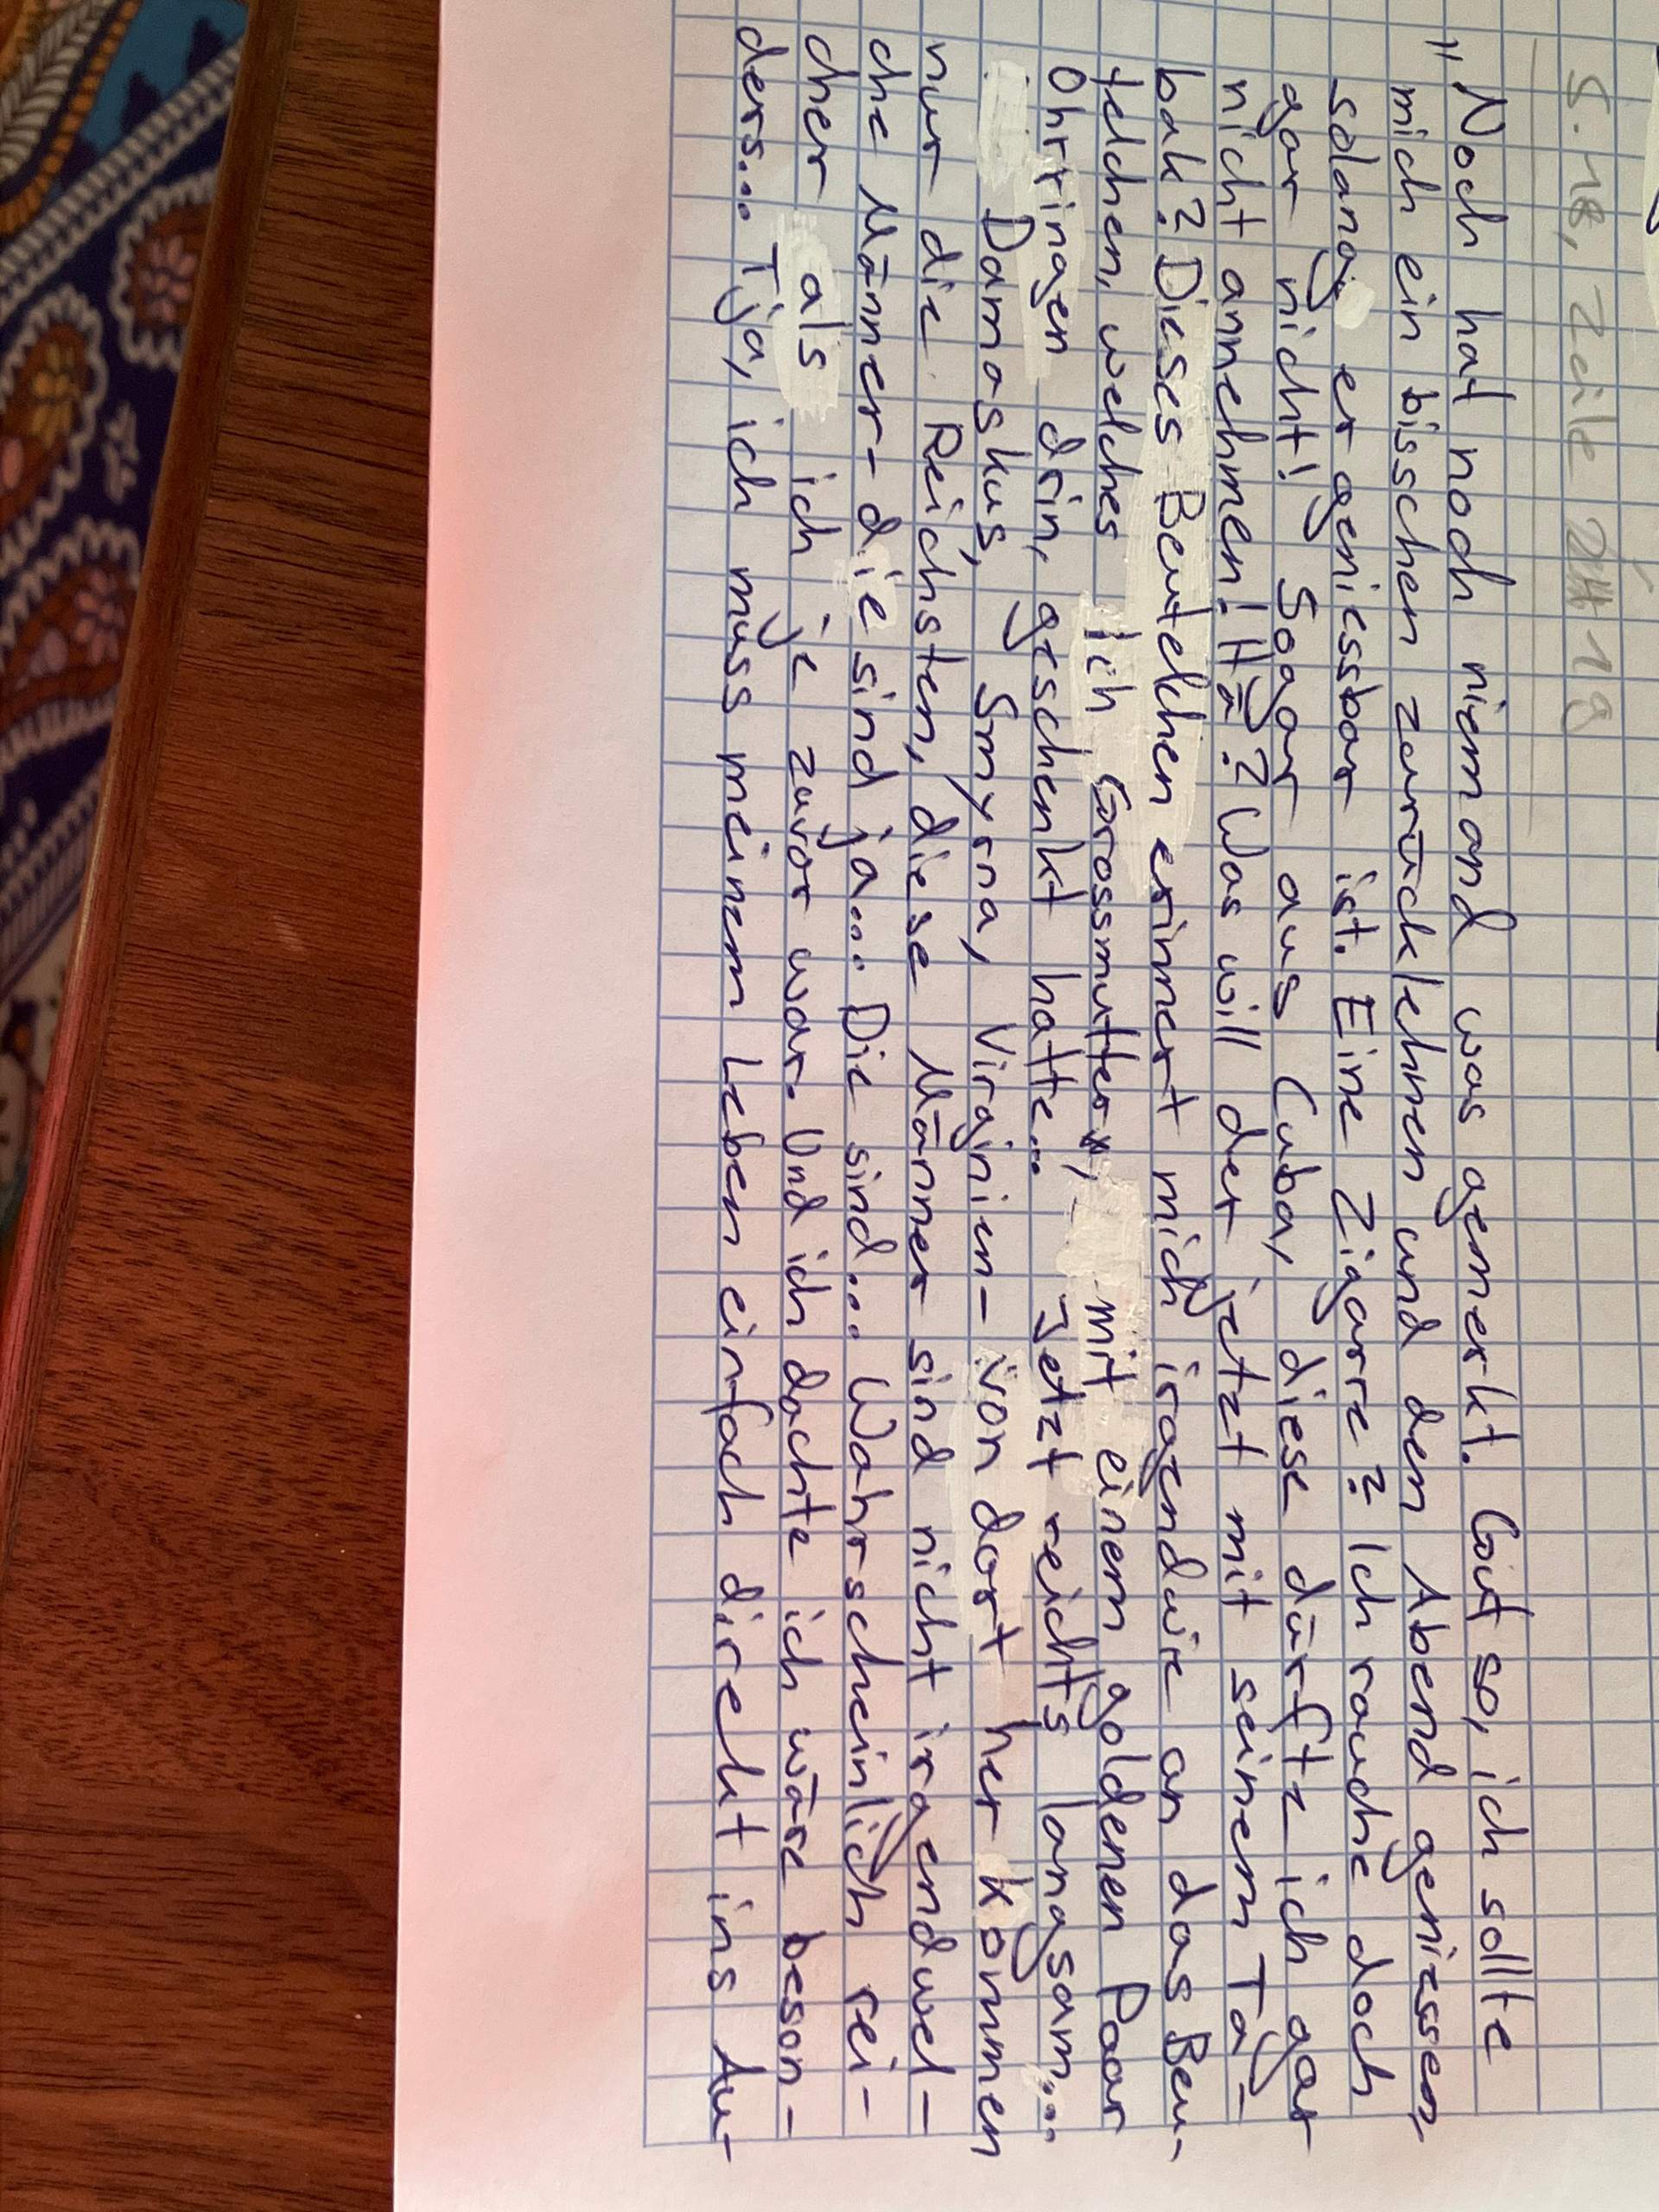 S. 18, Zeile 19
„Noch hat noch niemand was gemerkt. Gut so, ich sollte
mich ein bisschen zurücklehnen und den Abend geniessen,
solang er geniessbar ist. Eine Zigarre? Ich rauche doch
gar nicht! Sogar aus Cuba, diese dürfte ich gar
nicht annehmen! Hä? Was will der jetzt mit seinem Ta-
bak? Dieses Beutelchen erinnert mich irgendwie an das Beu-
telchen, welches ich Grossmutter, mit einem goldenen Paar
Ohrringen drin, geschenkt hatte... Jetzt reichts langsam...
Damaskus, Smyrna, Virginien- von dort her kommen
nur die Reichsten, diese Männer sind nicht irgendwel-
che Männer- die sind ja... Die sind... Wahrscheinlich rei-
cher als ich je zuvor war. Und ich dachte ich wäre beson-
ders... Tja, ich muss meinem Leben einfach direkt ins Au-